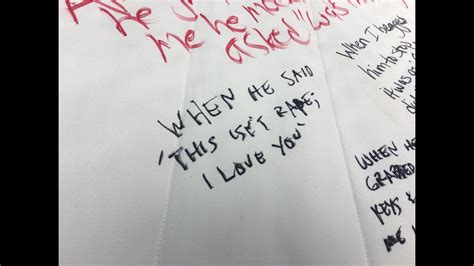 me he
asked "was
WHEN HE SAID
'THIS ISN'T RAPE;
I LOVE YOU'
When I begged
him to stop
it was
WHEN HE
GRABBED
KEYS &
ME